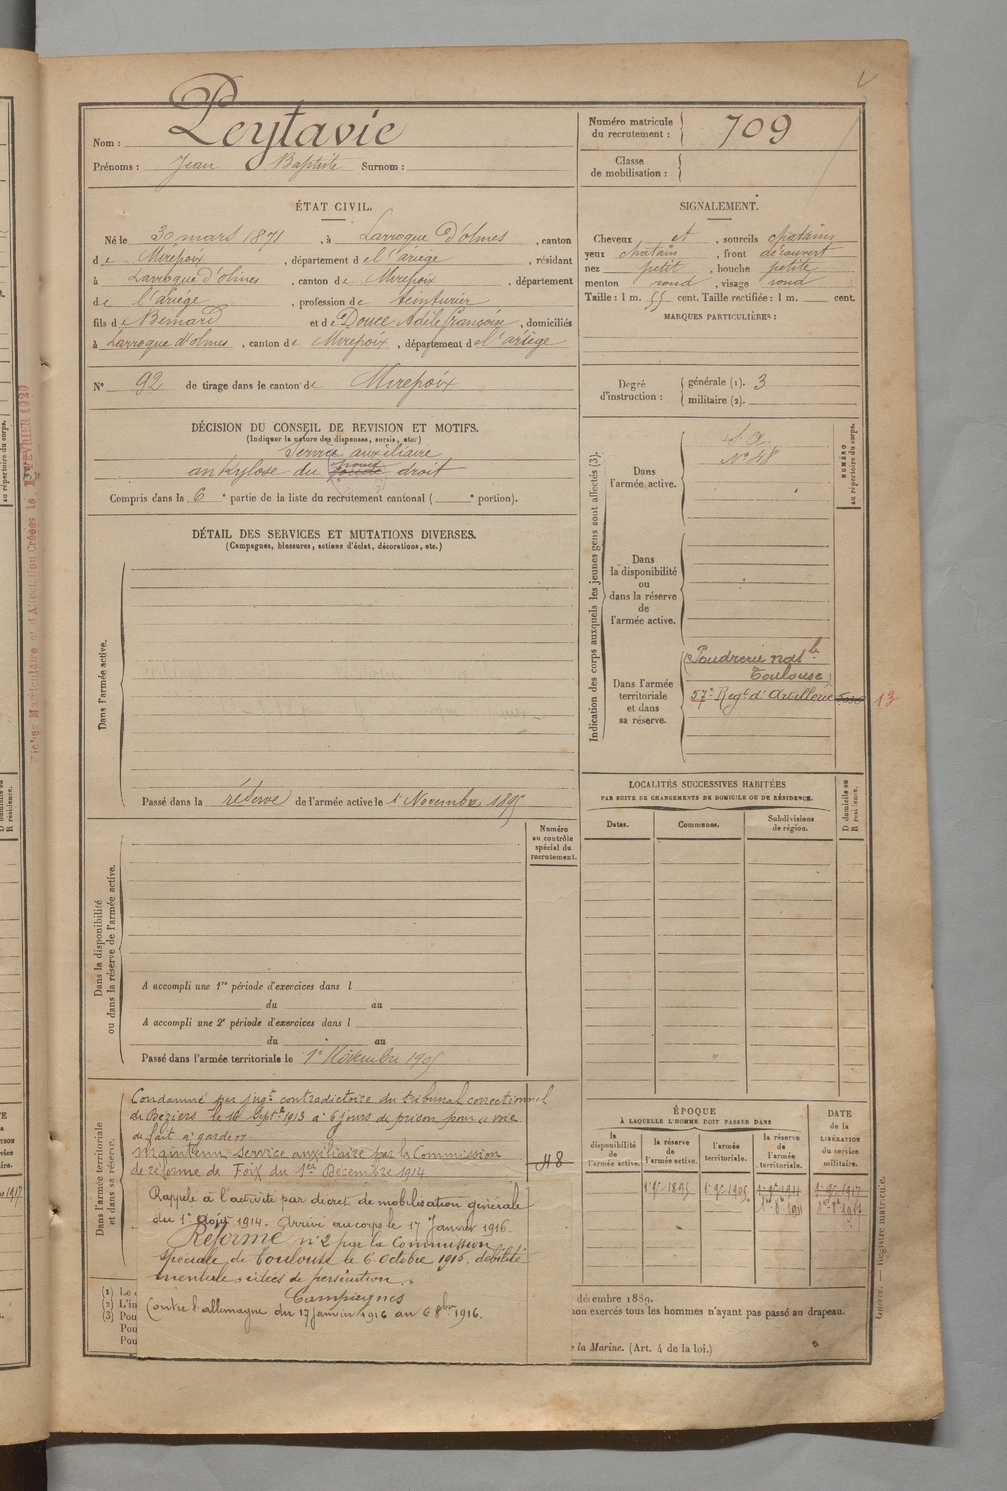 Nom : Peytavie
Prénoms : Jean Baptiste Surnom :
Numéro matricule du recrutement : 709
Classe de mobilisation :
ÉTAT CIVIL.
Né le 30 mars 1871, à Larroque d'olmes, canton
de Mirepoix, département de l'ariège, résidant
à Larroque d'olmes, canton de Mirepoix, département
de l'ariège, profession de teinturier
fils de Bernard et de Douce Adèle françoise, domiciliés
à Larroque d'olmes, canton de Mirepoix, département de l'ariège
N° 92 de tirage dans le canton de Mirepoix
SIGNALEMENT.
Cheveux et, sourcils chatains
yeux chatain, front découvert
nez petit, bouche petite
menton rond, visage rond
Taille : 1 m. 55 cent. Taille rectifiée : 1 m. cent.
MARQUES PARTICULIÈRES :
Degré d'instruction : générale (1). 3
militaire (2).
DÉCISION DU CONSEIL DE REVISION ET MOTIFS.
(Indiquer la nature des dispenses, sursis, etc.)
Service auxiliaire
ankylose du droit
Compris dans la 6e partie de la liste du recrutement cantonal ( e portion).
DÉTAIL DES SERVICES ET MUTATIONS DIVERSES.
(Campagnes, blessures, actions d'éclat, décorations, etc.)
Dans l'armée active.
Passé dans la réserve de l'armée active le 1r Novembre 1895
Indication des corps auxquels les jeunes gens sont affectés (3).
NUMÉRO au répertoire du corps.
Dans l'armée active.
S. A.
N° 48
Dans la disponibilité ou dans la réserve de l'armée active.
Dans l'armée territoriale et dans sa réserve.
Poudrerie natle
Toulouse
57e Regt d'Artillerie 13
LOCALITÉS SUCCESSIVES HABITÉES
PAR SUITE DE CHANGEMENTS DE DOMICILE OU DE RÉSIDENCE.
Dates. Communes. Subdivisions de région. D domicile ou R résidence.
Dans la disponibilité ou dans la réserve de l'armée active.
Numéro au contrôle spécial du recrutement.
A accompli une 1re période d'exercices dans l
du au
A accompli une 2e période d'exercices dans l
du au
Passé dans l'armée territoriale le 1er Novembre 1905
Dans l'armée territoriale et dans sa réserve.
Condamné par jugt contradictoire du tribunal correctionnel
de Béziers le 16 Septbre 1913 à 6 jours de prison pour voie
de fait à garde
Maintenu Service auxiliaire par la Commission
de réforme de Foix du 1er Décembre 1914
48
Rappelé à l'activité par décret de mobilisation générale
du 1er Août 1914. Arrivé au corps le 17 Janvier 1916.
Réformé n° 2 par la Commission
spéciale de Toulouse le 6 Octobre 1916. débilité
mentale, idées de persécution.
Campagnes
Contre l'allemagne du 17 janvier 1916 au 6 8bre 1916.
ÉPOQUE
À LAQUELLE L'HOMME DOIT PASSER DANS
la disponibilité de l'armée active. la réserve de l'armée active. l'armée territoriale. la réserve de l'armée territoriale.
DATE de la LIBÉRATION du service militaire.
1r 9e 1895 1r 9e 1905 1r 9e 1911 1r 9e 1917
(1) Le
(2) L'in
(3) Pou
Pou
Pou
décembre 1889.
non exercés tous les hommes n'ayant pas passé au drapeau.
la Marine. (Art. 4 de la loi.)
Guerre. — Registre matricule.